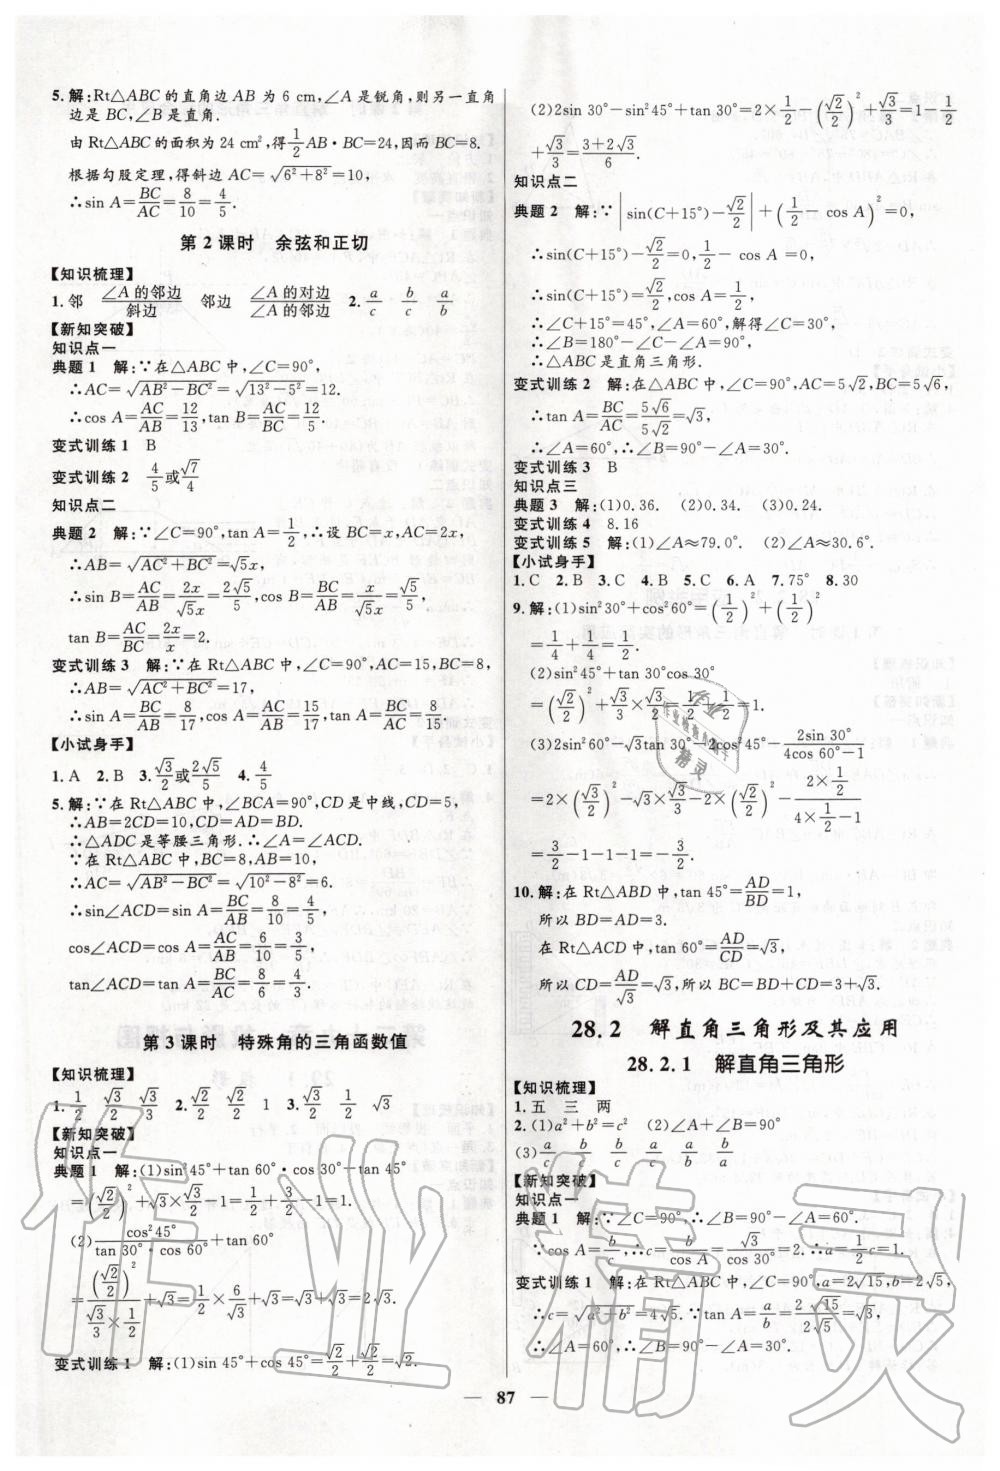 5. 解:Rt△ABC 的直角边 AB 为 6 cm,∠A 是锐角,则另一直角
边是 BC,∠B 是直角.
由 Rt△ABC 的面积为 24 cm²,得 1/2 AB·BC=24,因而 BC=8.
根据勾股定理,得斜边 AC=√(6²+8²)=10,
∴sin A=BC/AC=8/10=4/5.
第 2 课时 余弦和正切
【知识梳理】
1. 邻 ∠A的邻边/斜边 邻边 ∠A的对边/∠A的邻边 2. a/c b/c a/b
【新知突破】
知识点一
典题 1 解:∵在△ABC 中,∠C=90°,
∴AC=√(AB²−BC²)=√(13²−5²)=12.
∴cos A=AC/AB=12/13,tan B=AC/BC=12/5.
变式训练 1 B
变式训练 2 4/5或√7/4
知识点二
典题 2 解:∵∠C=90°,tan A=1/2,∴设 BC=x,AC=2x,
∴AB=√(AC²+BC²)=√5x,
∴sin B=AC/AB=2x/(√5x)=2√5/5,cos B=BC/AB=√5/5,
tan B=AC/BC=2x/x=2.
变式训练 3 解:∵Rt△ABC 中,∠C=90°,AC=15,BC=8,
∴AB=√(AC²+BC²)=17,
∴sin A=BC/AB=8/17,cos A=AC/AB=15/17,tan A=BC/AC=8/15.
【小试身手】
1. A 2. B 3. √3/2或2√5/5 4. 4/5
5. 解:∵在 Rt△ABC 中,∠BCA=90°,CD 是中线,CD=5,
∴AB=2CD=10,CD=AD=BD.
∴△ADC 是等腰三角形.∴∠A=∠ACD.
∵在 Rt△ABC 中,BC=8,AB=10,
∴AC=√(AB²−BC²)=√(10²−8²)=6.
∴sin∠ACD=sin A=BC/AB=8/10=4/5,
cos∠ACD=cos A=AC/AB=6/10=3/5,
tan∠ACD=tan A=BC/AC=8/6=4/3.
第 3 课时 特殊角的三角函数值
【知识梳理】
1. 1/2 √3/2 √3/3 2. √2/2 √2/2 1 3. √3/2 1/2 √3
【新知突破】
知识点一
典题 1 解:(1)sin²45°+tan 60°·cos 30°−tan 45°
=(√2/2)²+√3×√3/2−1=1/2+3/2−1=1.
(2)cos²45°/(tan 30°·cos 60°)+tan 60°
=(√2/2)²/(√3/3×1/2)+√3=1/2×6/√3+√3=√3+√3=2√3.
变式训练 1 解:(1)sin 45°+cos 45°=√2/2+√2/2=√2.
(2)2sin 30°−sin²45°+tan 30°=2×1/2−(√2/2)²+√3/3=1−1/2
+√3/3=(3+2√3)/6.
知识点二
典题 2 解:∵|sin(C+15°)−√2/2|+(1/2−cos A)²=0,
∴sin(C+15°)−√2/2=0,1/2−cos A=0,
∴sin(C+15°)=√2/2,cos A=1/2,
∴∠C+15°=45°,∠A=60°,解得∠C=30°.
∴∠B=180°−∠C−∠A=90°.
∴△ABC 是直角三角形.
变式训练 2 解:在△ABC 中,∠C=90°,AC=5√2,BC=5√6,
∴tan A=BC/AC=5√6/5√2=√3,
∴∠A=60°,∴∠B=90°−∠A=30°.
变式训练 3 B
知识点三
典题 3 解:(1)0.36. (2)0.34. (3)0.24.
变式训练 4 8.16
变式训练 5 解:(1)∠A≈79.0°. (2)∠A≈30.6°.
【小试身手】
1. C 2. B 3. C 4. B 5. C 6. A 7. 75° 8. 30
9. 解:(1)sin²30°+cos²60°=(1/2)²+(1/2)²
=1/4+1/4=1/2.
(2)sin²45°+tan 60°cos 30°
=(√2/2)²+√3×√3/2−1/2+1/2=1.
(3)2sin²60°−√3tan 30°−2cos²45°−2sin 30°/(4cos 60°−1)
=2×(√3/2)²−√3×√3/3−2×(√2/2)²−(2×1/2)/(4×1/2−1)
=3/2−1−1−1=−3/2.
10. 解:在 Rt△ABD 中,tan 45°=AD/BD=1,
所以 BD=AD=3.
在 Rt△ACD 中,tan 60°=AD/CD=√3,
所以 CD=AD/√3=3/√3=√3,所以 BC=BD+CD=3+√3.
28.2 解直角三角形及其应用
28.2.1 解直角三角形
【知识梳理】
1. 五 三 两
2. (1)a²+b²=c² (2)∠A+∠B=90°
(3)a/c b/c a/b b/c a/c b/a
【新知突破】
知识点一
典题 1 解:∵∠C=90°,∴∠B=90°−∠A=60°.
∵cos A=b/c,∴c=b/cos A=√3/cos 30°=√3/(√3/2)=2.∴a=1/2c=1.
变式训练 1 解:在 Rt△ABC 中,∠C=90°,a=2√15,b=2√5,
∴c=√(a²+b²)=4√5.∵tan A=a/b=2√15/2√5=√3,
87
作业精灵